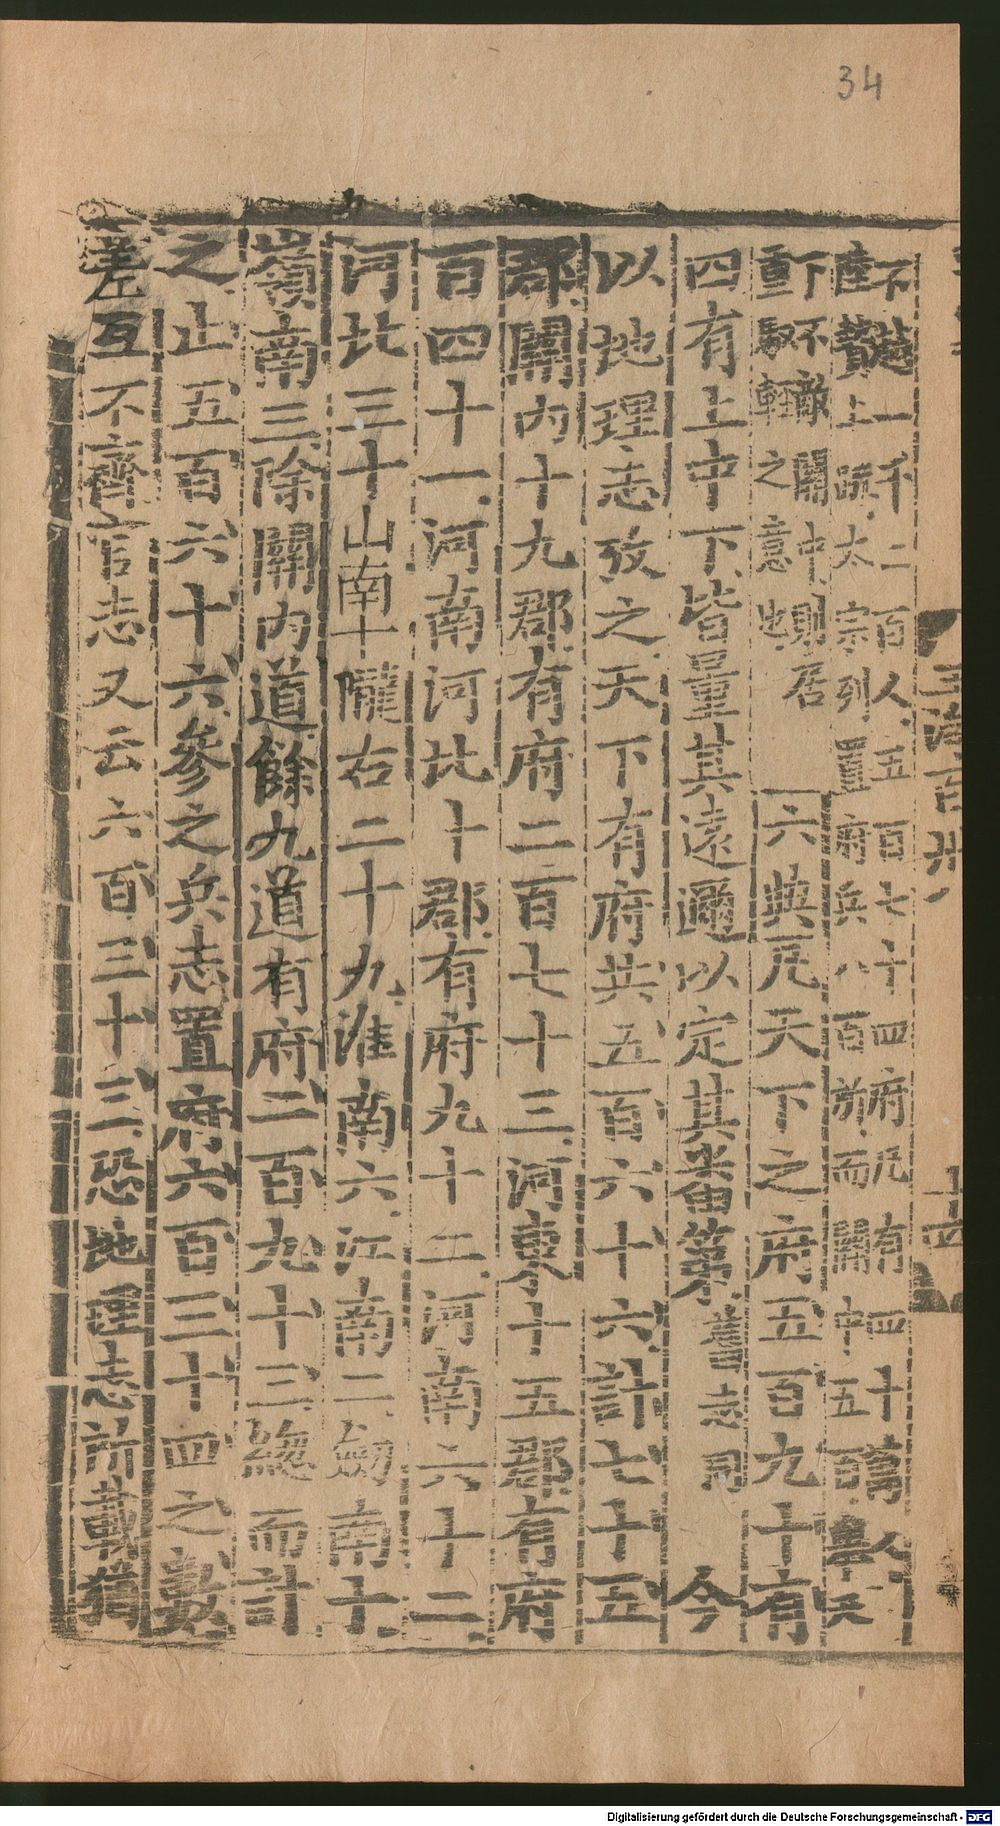 34
下能一千二百人五百七十四府凡有四十萬人
陸贄上疏太宗列置府兵八百所而關中五百舉
下不敵關中則居
重馭輕之意也
六典凡天下之府五百九十有
四有上中下皆畺其遠邇以定其番第書志同今
以地理志攷之天下有府共五百六十六計七十五
郡關內十九郡有府二百七十三河東十五郡有府
百四十一河南河北十郡有府九十二河南六十二
河北三十山南十隴右二十九淮南六江南二劒南十
嶺南三除關內道餘九道有府二百九十三緫而計
之止五百六十六參之兵志置府六百三十四之數
差互不齊百志又云六百三十三恐地理志所載猶
Digitalisierung gefördert durch die Deutsche Forschungsgemeinschaft - DFG